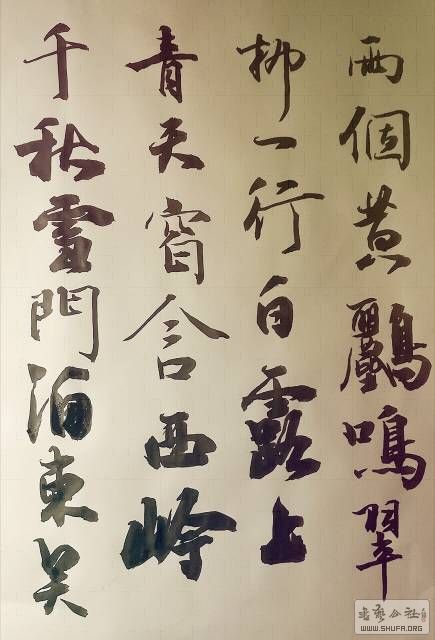 兩個黄鸝鳴翠
柳一行白露上
青天窗含西岭
千秋雪門泊東吴
書藝公社
WWW.SHUFA.ORG